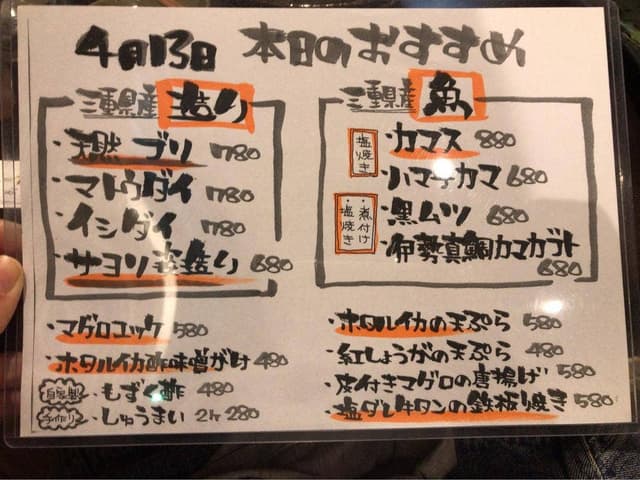 4月13日 本日のおすすめ
三重県産 造り
・天然 ブリ 780
・マトウダイ 780
・イシダイ 780
・サヨリ姿造り 680
三重県産 魚
塩焼き
・カマス 880
・ハマチカマ 680
・煮付け
・塩焼き
・黒ムツ 680
・伊勢真鯛カマカブト 680
・マグロユッケ 580
・ホタルイカ酢味噌がけ 480
自家製 ・もずく酢 480
手作り ・しゅうまい 2ヶ 280
・ホタルイカの天ぷら 580
・紅しょうがの天ぷら 480
・皮付きマグロの唐揚げ 580
・塩ダレ牛タンの鉄板焼き 580